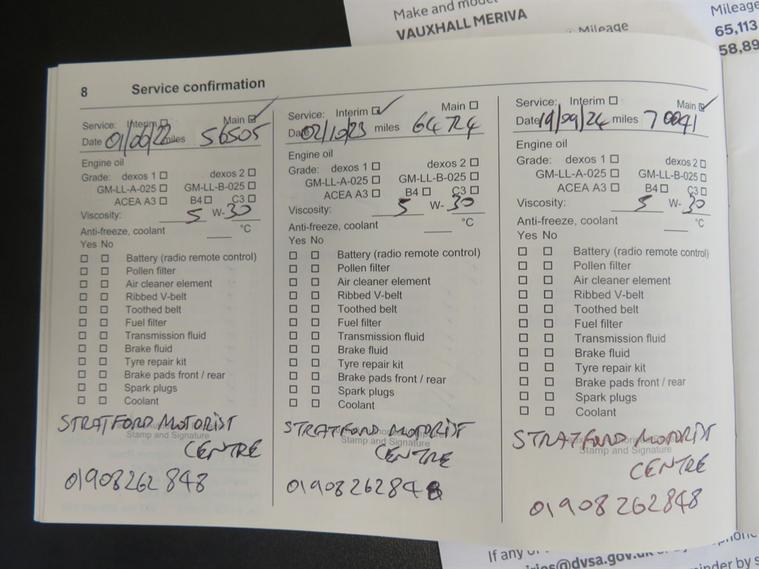 Make and model
VAUXHALL MERIVA
Mileage
Mileage
65,113
58,89
8 Service confirmation
Service: Interim Main
Date 01/06/22 miles 56505
Engine oil
Grade: dexos 1 dexos 2
GM-LL-A-025 GM-LL-B-025
ACEA A3 B4 C3
Viscosity: 5 W- 30
Anti-freeze, coolant °C
Yes No
Battery (radio remote control)
Pollen filter
Air cleaner element
Ribbed V-belt
Toothed belt
Fuel filter
Transmission fluid
Brake fluid
Tyre repair kit
Brake pads front / rear
Spark plugs
Coolant
Stamp and Signature
STRATFORD MOTORIST
CENTRE
01908262848
Service: Interim Main
Date 02/10/23 miles 64724
Engine oil
Grade: dexos 1 dexos 2
GM-LL-A-025 GM-LL-B-025
ACEA A3 B4 C3
Viscosity: 5 W- 30
Anti-freeze, coolant °C
Yes No
Battery (radio remote control)
Pollen filter
Air cleaner element
Ribbed V-belt
Toothed belt
Fuel filter
Transmission fluid
Brake fluid
Tyre repair kit
Brake pads front / rear
Spark plugs
Coolant
Stamp and Signature
STRATFORD MOTORIST
CENTRE
01908262848
Service: Interim Main
Date 19/09/24 miles 70091
Engine oil
Grade: dexos 1 dexos 2
GM-LL-A-025 GM-LL-B-025
ACEA A3 B4 C3
Viscosity: 5 W- 30
Anti-freeze, coolant °C
Yes No
Battery (radio remote control)
Pollen filter
Air cleaner element
Ribbed V-belt
Toothed belt
Fuel filter
Transmission fluid
Brake fluid
Tyre repair kit
Brake pads front / rear
Spark plugs
Coolant
Stamp and Signature
STRATFORD MOTORIST
CENTRE
01908262848
If any of
@dvsa.gov.uk